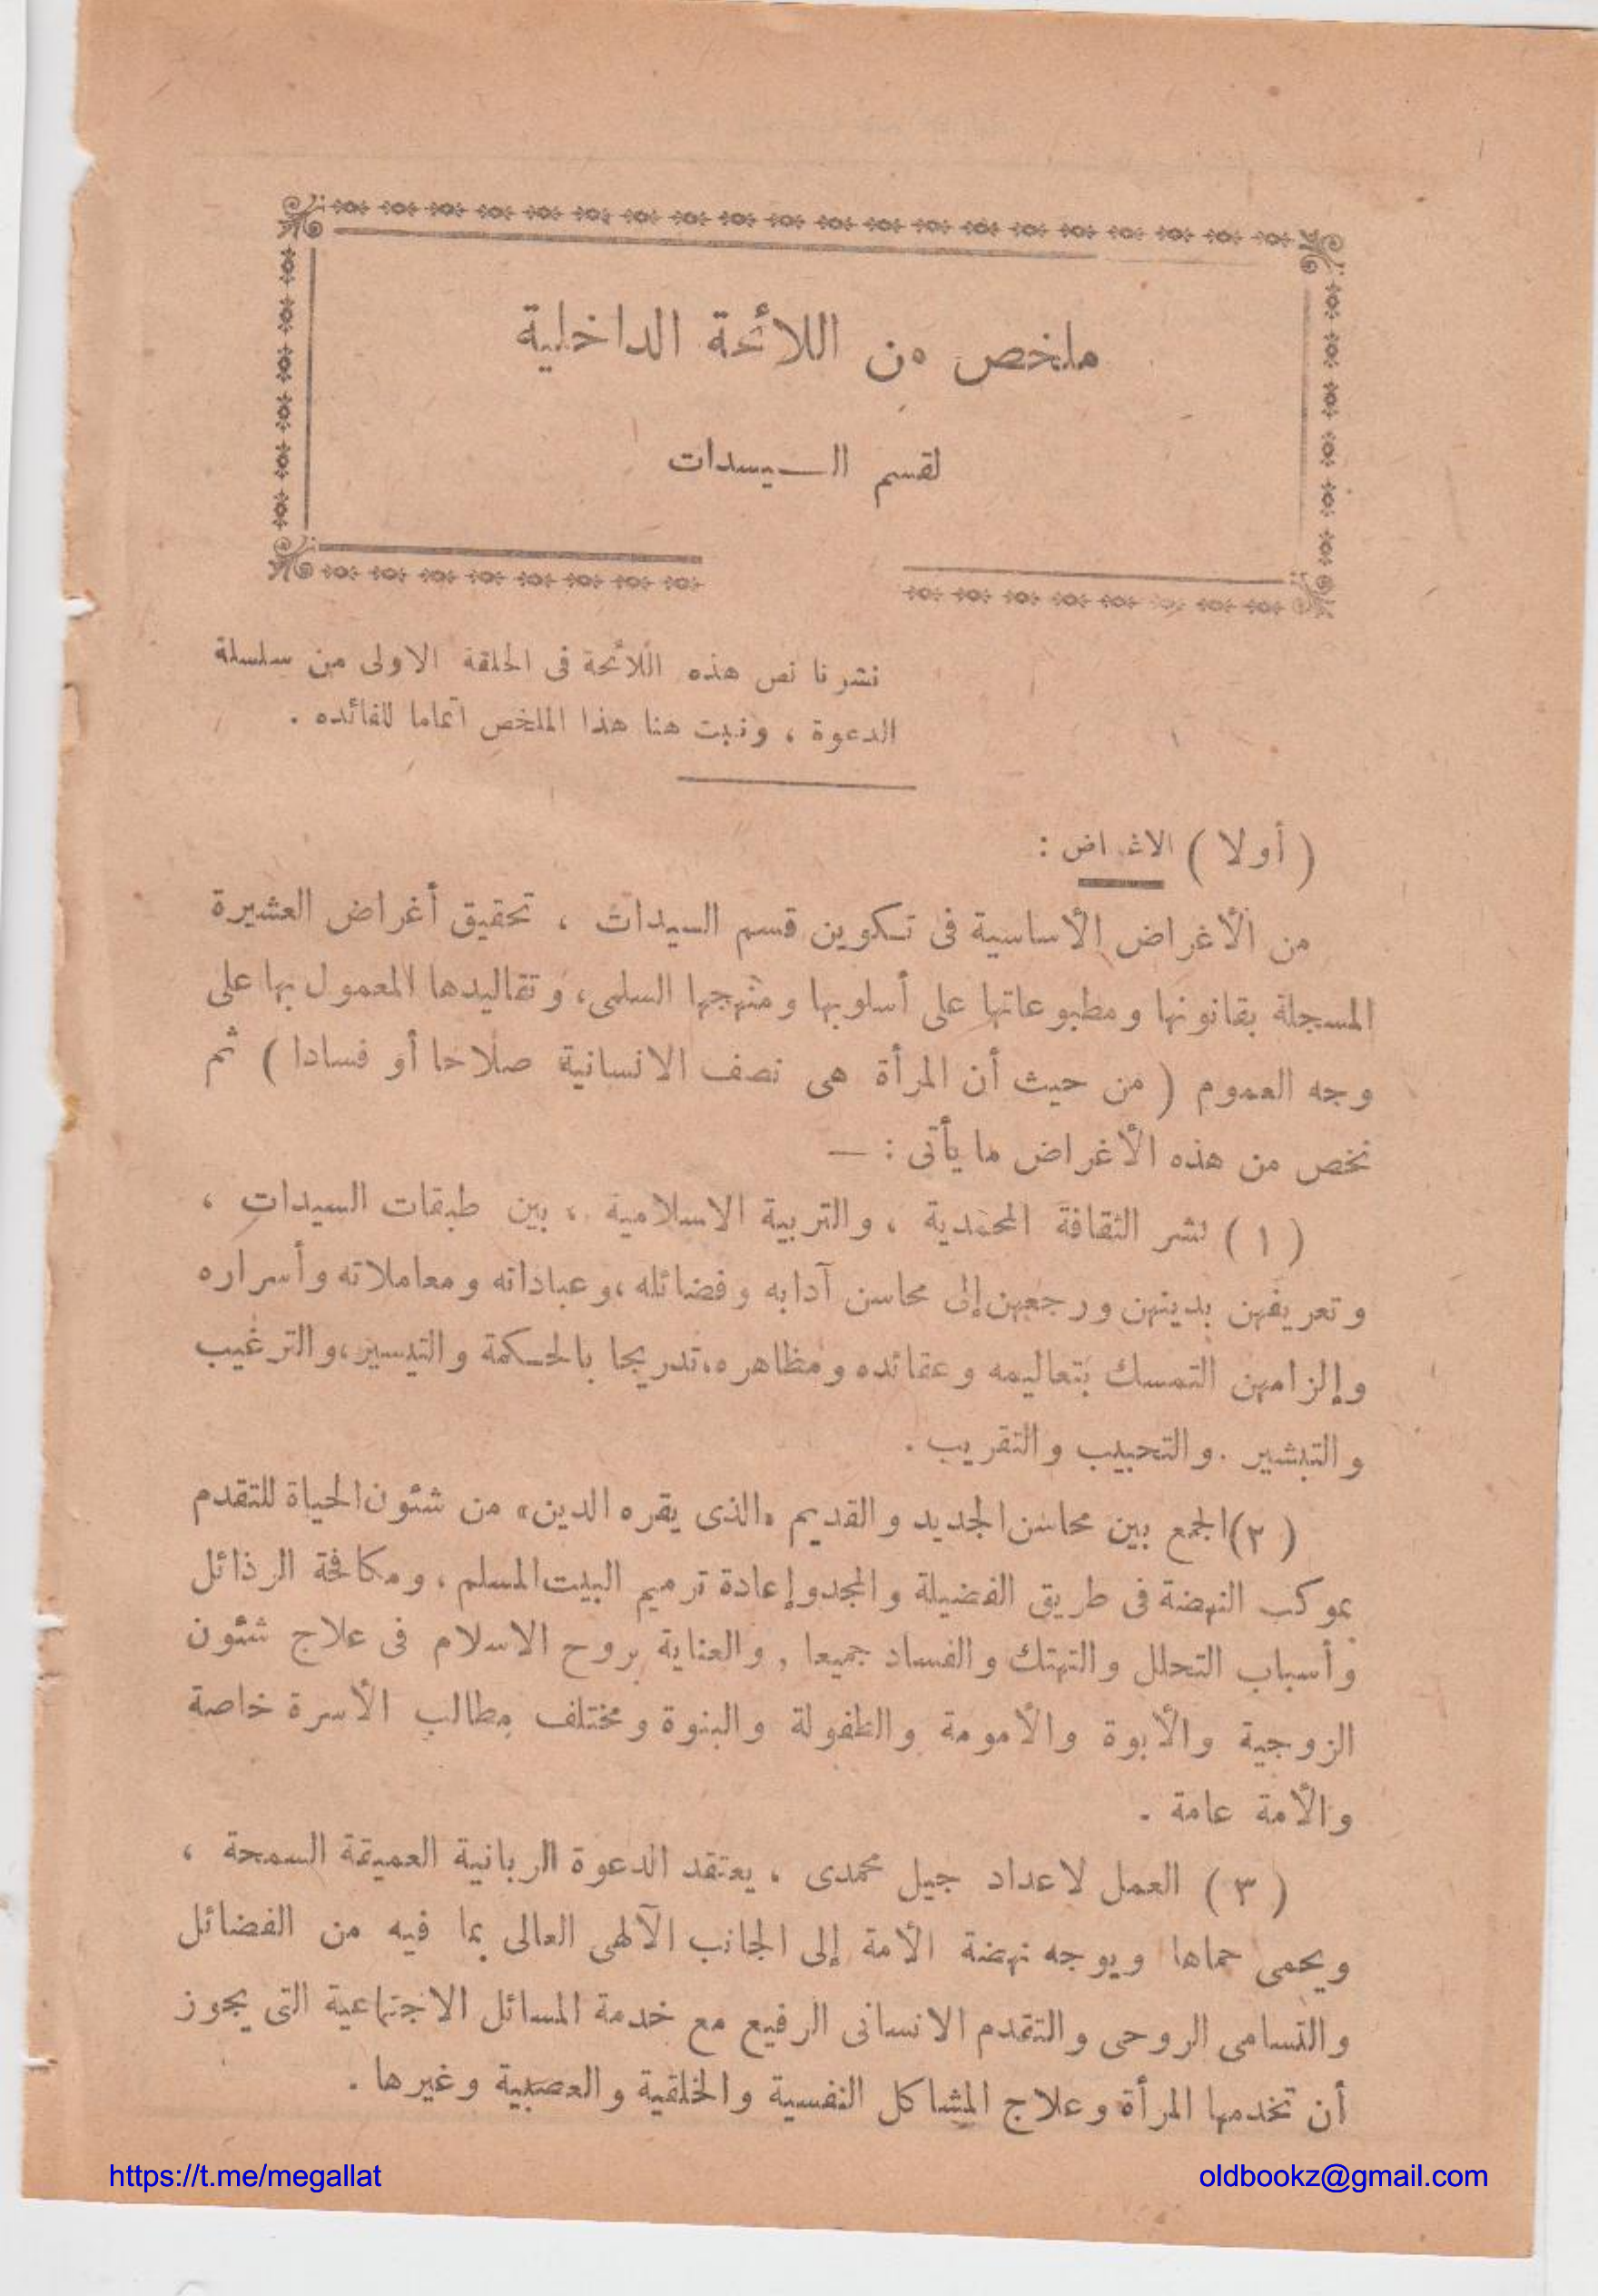 ملخص من اللائحة الداخلية
لقسم الـسيدات
نشرنا نص هذه اللائحة فى الحلقة الاولى من سلسلة
الدعوة ، ونبت هنا هذا الملخص اتماما للفائده .
( أولا ) الاغراض :
من الأغراض الأساسية فى تكوين قسم السيدات ، تحقيق أغراض العشيرة
المسجلة بقانونها ومطبوعاتها على أسلوبها ومنهجها السلمى، وتقاليدها المعمول بها على
وجه العموم ( من حيث أن المرأة هى نصف الانسانية صلاحا أو فسادا ) ثم
نخص من هذه الأغراض ما يأتى : —
( ١ ) نشر الثقافة المحمدية ، والتربية الاسلامية ، بين طبقات السيدات ،
وتعريفهن بدينهن ورجعهن إلى محاسن آدابه وفضائله ،وعباداته ومعاملاته وأسراره
وإلزامهن التمسك بتعاليمه وعقائده ومظاهره،تدريجا بالحكمة والتيسير،والترغيب
والتبشير .والتحبيب والتقريب .
( ٢ )الجمع بين محاسن الجديد والقديم «الذى يقره الدين» من شئون الحياة للتقدم
بموكب النهضة فى طريق الفضيلة والمجدوإعادة ترميم البيت المسلم ، ومكافحة الرذائل
وأسباب التحلل والتهتك والفساد جميعا , والعناية بروح الاسلام فى علاج شئون
الزوجية والأبوة والأمومة والطفولة والبنوة ومختلف مطالب الأسرة خاصة
والأمة عامة .
( ٣ ) العمل لاعداد جيل محمدى ، يعتقد الدعوة الربانية العميقة السمحة ،
ويحمى حماها ويوجه نهضة الأمة إلى الجانب الآلهى العالى بما فيه من الفضائل
والتسامى الروحى والتقدم الانسانى الرفيع مع خدمة المسائل الاجتماعية التى يجوز
أن تخدمها المرأة وعلاج المشاكل النفسية والخلقية والعصبية وغيرها .
https://t.me/megallat
oldbookz@gmail.com